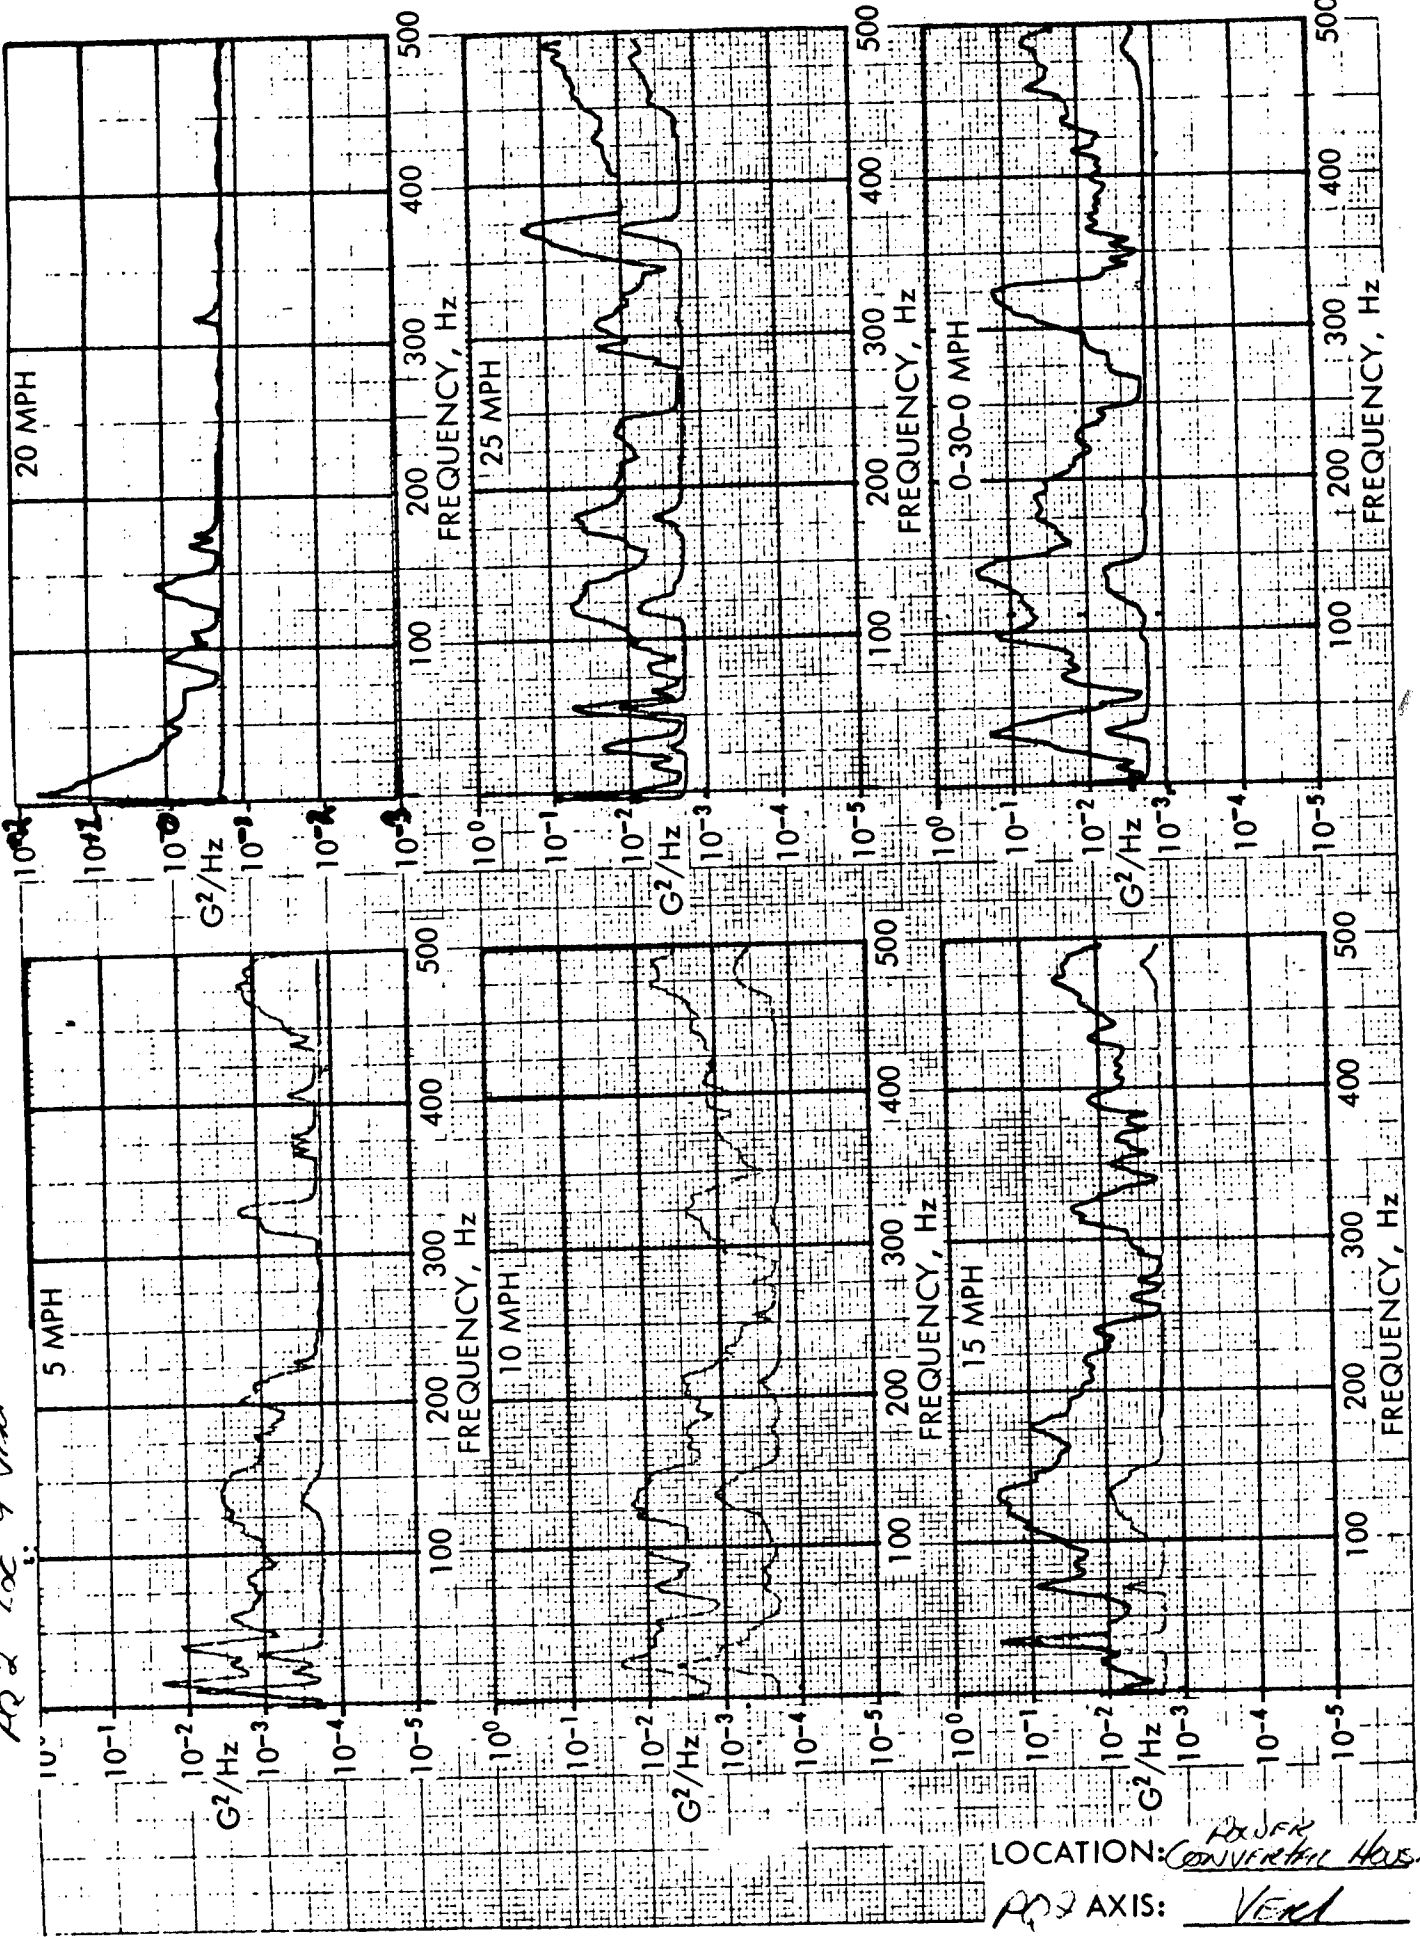 5 MPH
10⁻¹
10⁻²
G²/Hz
10⁻³
10⁻⁴
10⁻⁵
100 200 300 400 500
FREQUENCY, Hz
10 MPH
10⁰
10⁻¹
10⁻²
G²/Hz
10⁻³
10⁻⁴
10⁻⁵
100 200 300 400 500
FREQUENCY, Hz
15 MPH
10⁰
10⁻¹
10⁻²
G²/Hz
10⁻³
10⁻⁴
10⁻⁵
100 200 300 400 500
FREQUENCY, Hz
20 MPH
10⁺²
10⁺¹
10⁻⁰
G²/Hz
10⁻¹
10⁻²
10⁻³
100 200 300 400 500
FREQUENCY, Hz
25 MPH
10⁰
10⁻¹
10⁻²
G²/Hz
10⁻³
10⁻⁴
10⁻⁵
100 200 300 400 500
FREQUENCY, Hz
0-30-0 MPH
10⁰
10⁻¹
10⁻²
G²/Hz
10⁻³
10⁻⁴
10⁻⁵
100 200 300 400 500
FREQUENCY, Hz
LOCATION: POWER CONVERTER HOUS.
AXIS: VERT